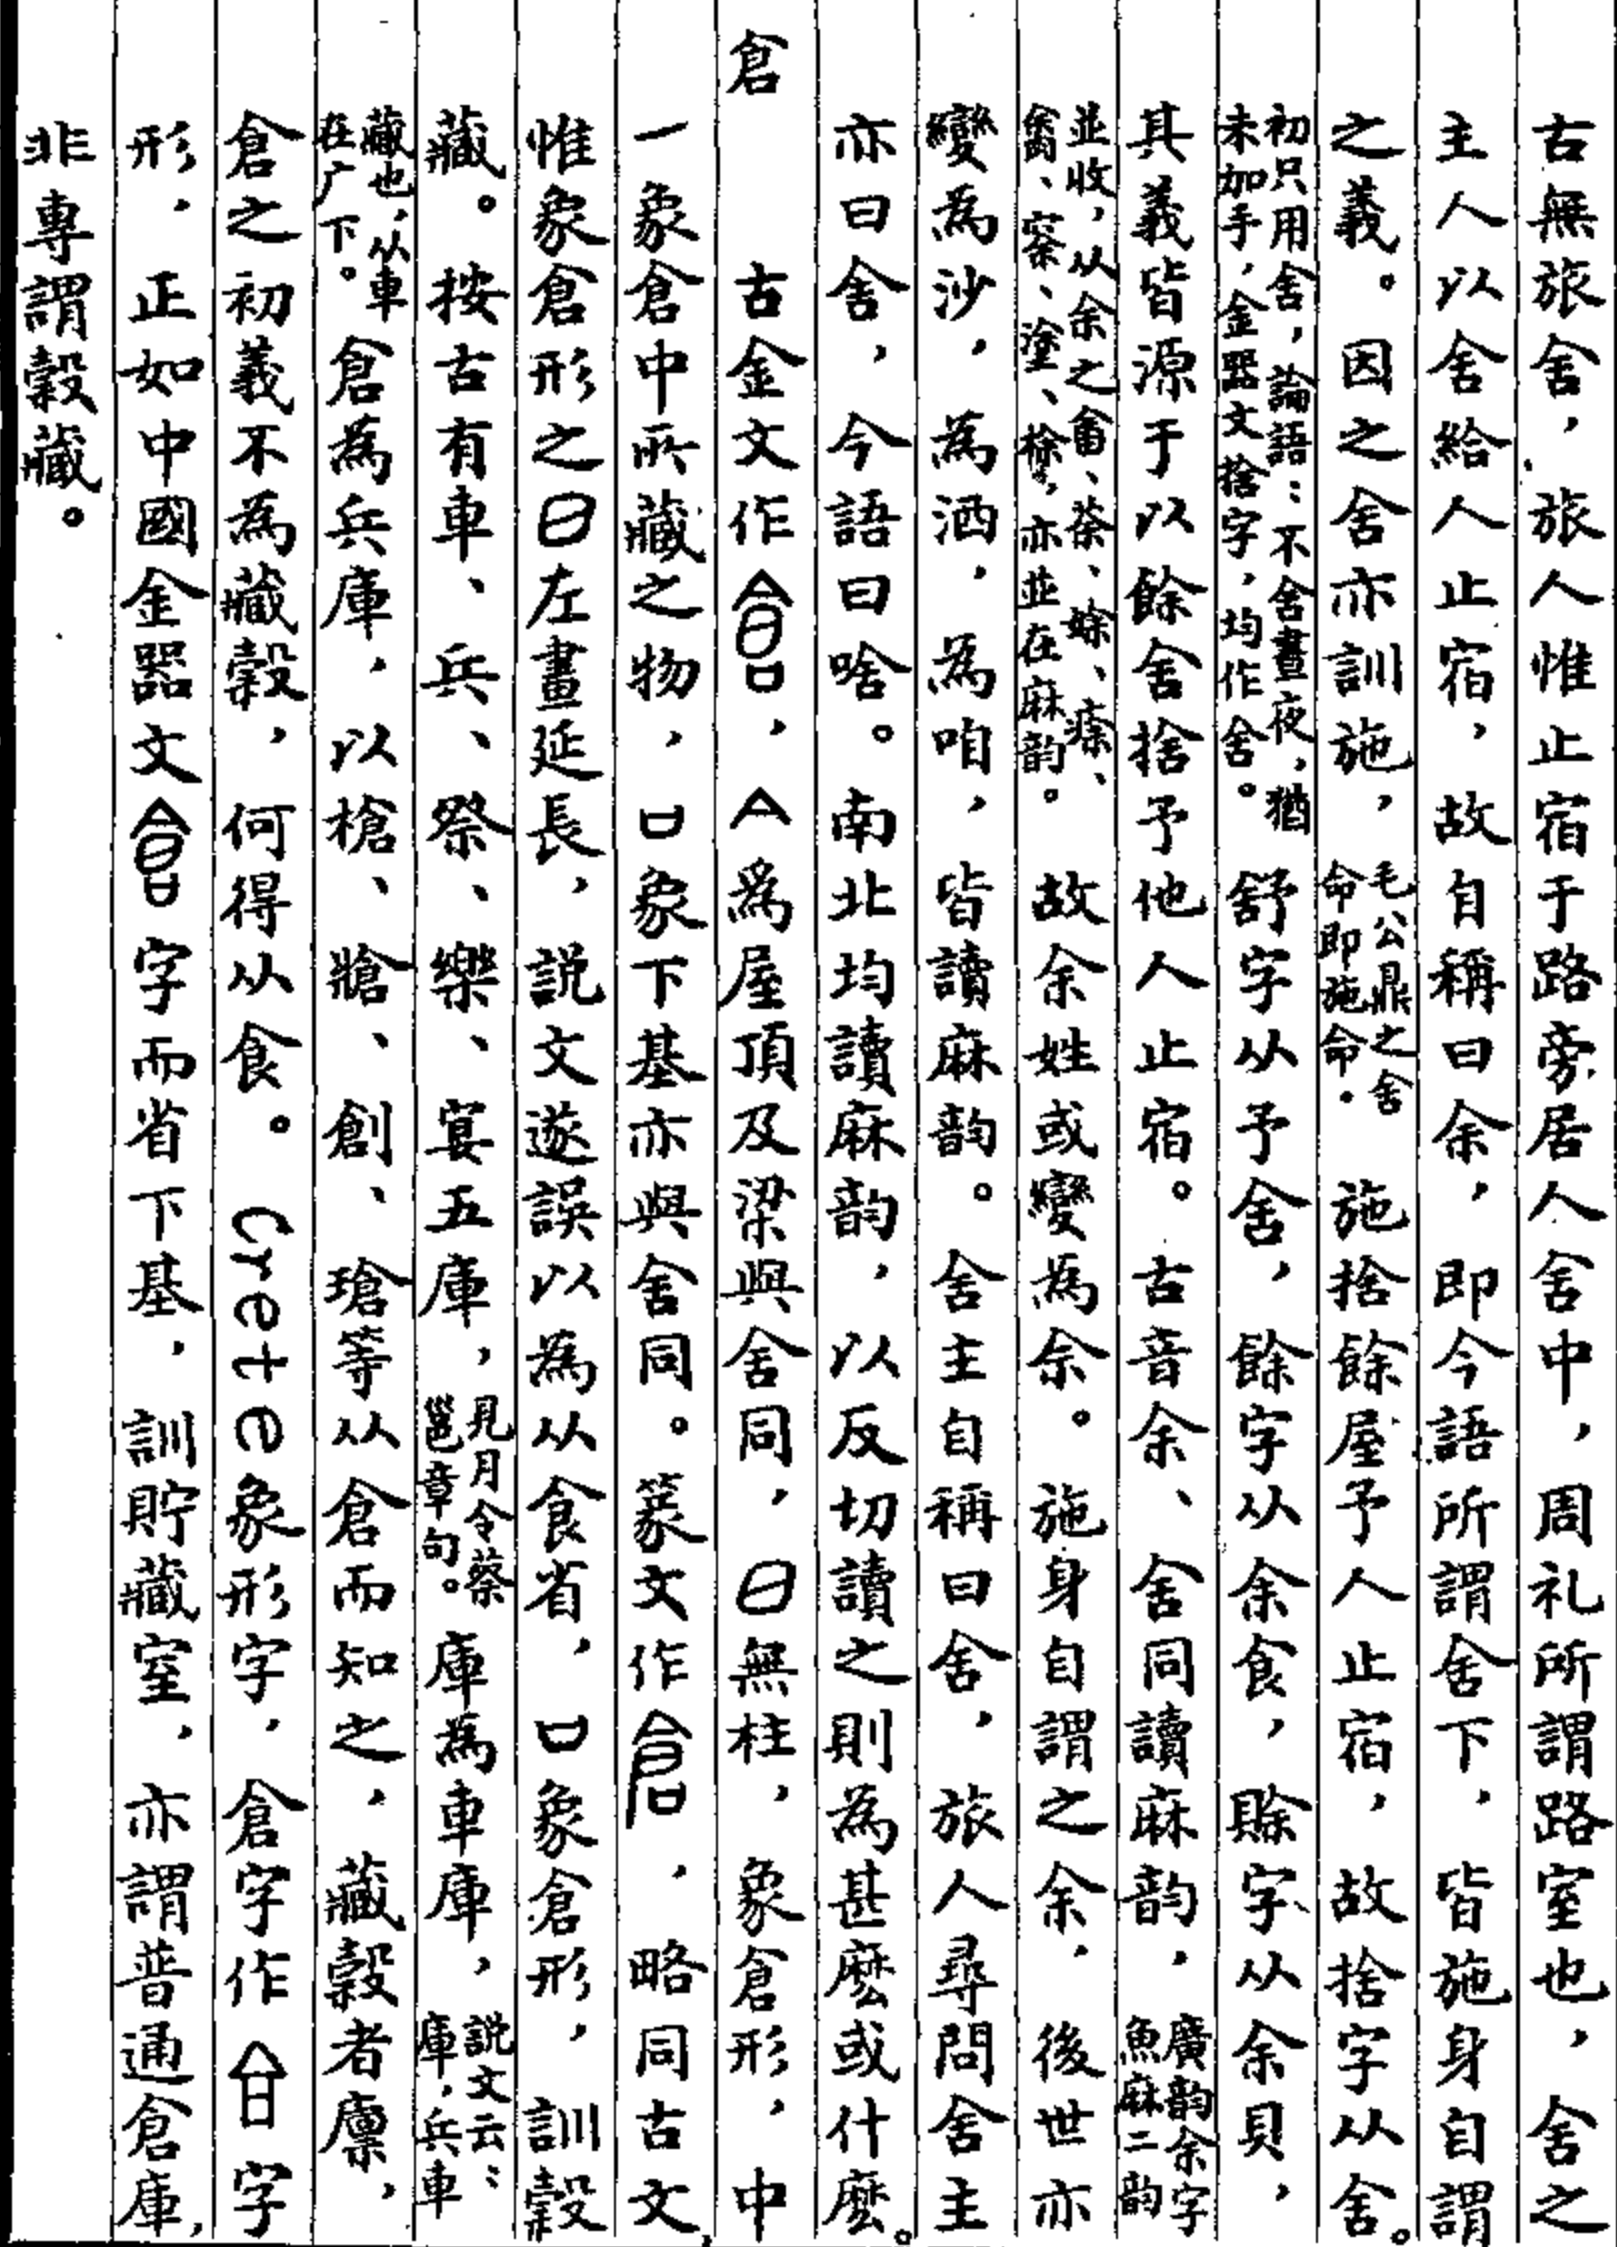 古無旅舍，旅人惟止宿于路旁居人舍中，周礼所謂路室也，舍之
主人以舍給人止宿，故自稱曰余，即今語所謂舍下，皆施身自謂
之義。因之舍亦訓施，毛公鼎之舍命即施命。施捨餘屋予人止宿，故捨字从舍。
初只用舍，論語：不舍晝夜，猶未加手，金器文捨字，均作舍。舒字从予舍，餘字从余食，賖字从余貝，
其義皆源于以餘舍捨予他人止宿。古音余、舍同讀麻韵，廣韵余字魚麻二韵
並收，从余之畬、荼、蜍、瘵、畬、寮、塗、梌，亦並在麻韵。故余姓或變為佘。施身自謂之余，後世亦
變為沙，為洒，為咱，皆讀麻韵。舍主自稱曰舍，旅人尋問舍主
亦曰舍，今語曰啥。南北均讀麻韵，以反切讀之則為甚麼或什麼。
倉　古金文作，亼為屋頂及梁與舍同，日無柱，象倉形，中
一象倉中所藏之物，口象下基亦與舍同。篆文作，略同古文，
惟象倉形之日左畫延長，説文遂誤以為从食省，口象倉形，訓穀
藏。按古有車、兵、祭、樂、宴五庫，見月令蔡邕章句。庫為車庫，説文云：庫，兵車
藏也，从車在广下。倉為兵庫，以槍、牄、創、瑲等从倉而知之，藏穀者廩，
倉之初義不為藏穀，何得从食。Crete象形字，倉字作字
形，正如中國金器文字而省下基，訓貯藏室，亦謂普通倉庫，
非專謂穀藏。